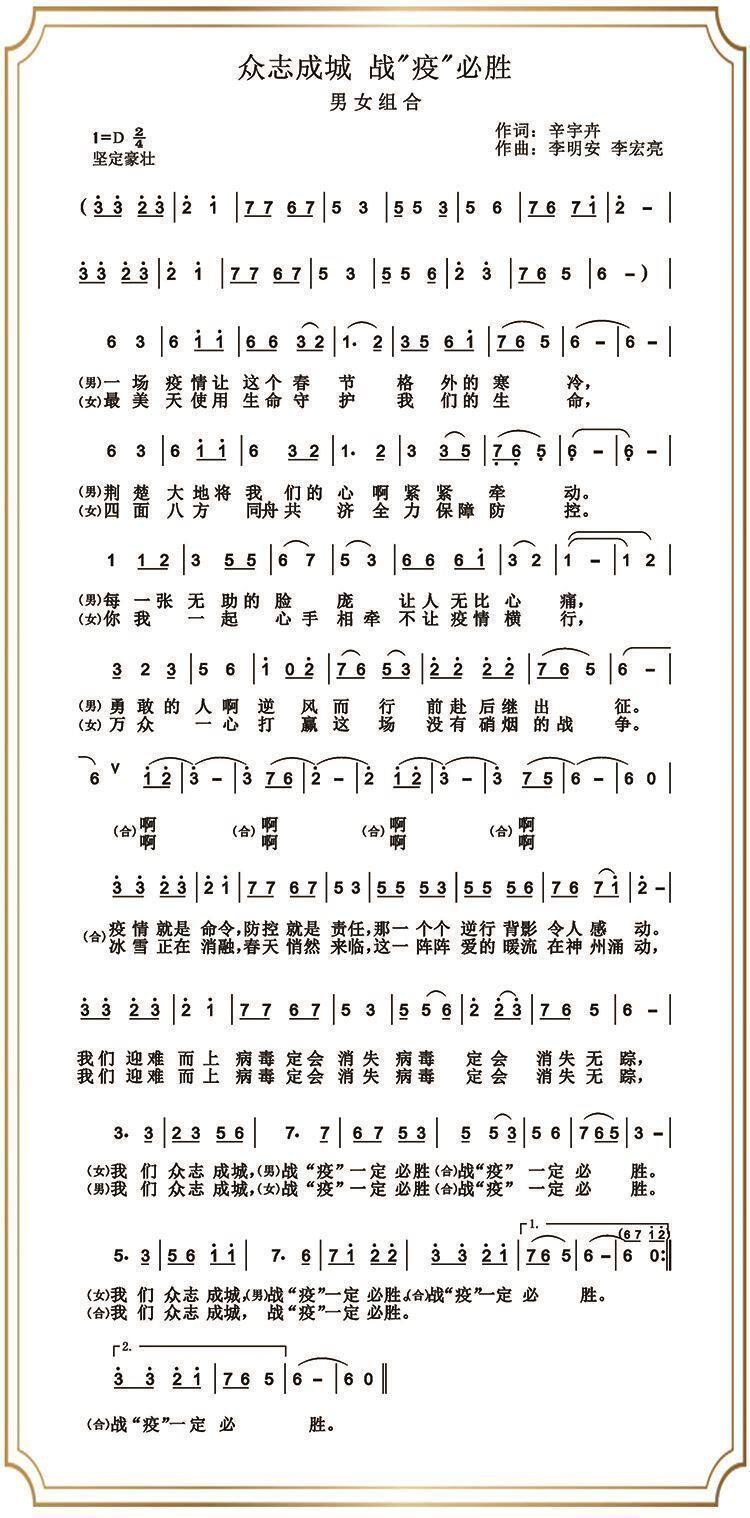 众志成城 战"疫"必胜
男女组合
1=D 2/4
作词：辛宇卉
坚定豪壮
作曲：李明安 李宏亮
(3 3 2 3|2 1|7 7 6 7|5 3|5 5 3|5 6|7 6 7 1|2 -|
3 3 2 3|2 1|7 7 6 7|5 3|5 5 6|2 3|7 6 5|6 -)|
6 3|6 1 1|6 6 3 2|1. 2|3 5 6 1|7 6 5|6 -|6 -|
(男)一场疫情让这个春节格外的寒冷，
(女)最美天使用生命守护我们的生命，
6 3|6 1 1|6 3 2|1. 2|3 3 5|7 6 5|6 -|6 -|
(男)荆楚大地将我们的心啊紧紧牵动。
(女)四面八方同舟共济全力保障防控。
1 1 2|3 5 5|6 7|5 3|6 6 6 1|3 2|1 -|1 2|
(男)每一张无助的脸庞让人无比心痛，
(女)你我一起心手相牵不让疫情横行，
3 2 3|5 6|1 0 2|7 6 5 3|2 2 2 2|7 6 5|6 -|
(男)勇敢的人啊逆风而行前赴后继出征。
(女)万众一心打赢这场没有硝烟的战争。
6 ∨ 1 2|3 -|3 7 6|2 -|2 1 2|3 -|3 7 5|6 -|6 0|
(合)啊 (合)啊 (合)啊 (合)啊
啊 啊 啊 啊
3 3 2 3|2 1|7 7 6 7|5 3|5 5 5 3|5 5 5 6|7 6 7 1|2 -|
(合)疫情就是命令，防控就是责任，那一个个逆行背影令人感动。
冰雪正在消融，春天悄然来临，这一阵阵爱的暖流在神州涌动，
3 3 2 3|2 1|7 7 6 7|5 3|5 5 6|2 2 3|7 6 5|6 -|
我们迎难而上病毒定会消失病毒定会消失无踪，
我们迎难而上病毒定会消失病毒定会消失无踪，
3. 3|2 3 5 6|7. 7|6 7 5 3|5 5 3|5 6|7 6 5|3 -|
(女)我们众志成城，(男)战“疫”一定必胜(合)战“疫”一定必胜。
(男)我们众志成城，(女)战“疫”一定必胜(合)战“疫”一定必胜。
1. (6 7 1 2)
5. 3|5 6 1 1|7. 6|7 1 2 2|3 3 2 1|7 6 5|6 -|6 0:||
(女)我们众志成城，(男)战“疫”一定必胜。(合)战“疫”一定必胜。
(合)我们众志成城，战“疫”一定必胜。
2.
3 3 2 1|7 6 5|6 -|6 0||
(合)战“疫”一定必胜。